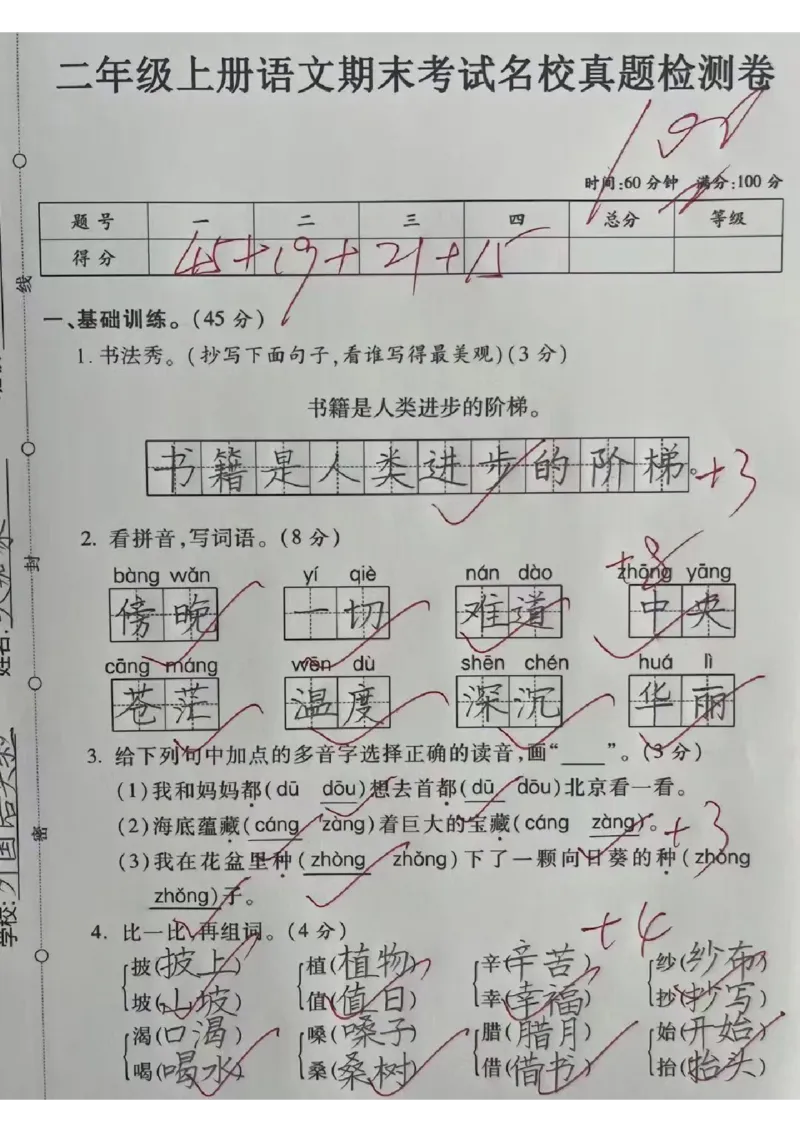 二年级上册语文期末考试名校真题检测卷
100
时间:60分钟 满分:100分
题号 一 二 三 四 总分 等级
得分 45+19+21+15
一、基础训练。(45分)
1.书法秀。(抄写下面句子,看谁写得最美观)(3分)
书籍是人类进步的阶梯。
书籍是人类进步的阶梯。 +3
2. 看拼音,写词语。(8分) +8
bàng wǎn yí qiè nán dào zhōng yāng
傍晚 一切 难道 中央
cāng máng wēn dù shēn chén huá lì
苍茫 温度 深沉 华丽
3. 给下列句中加点的多音字选择正确的读音,画“____”。(3分)
(1)我和妈妈都(dū dōu)想去首都(dū dōu)北京看一看。
(2)海底蕴藏(cáng zàng)着巨大的宝藏(cáng zàng)。 +3
(3)我在花盆里种(zhòng zhǒng)下了一颗向日葵的种(zhòng
zhǒng)子。
4. 比一比,再组词。(4分) +4
披(披上) 植(植物) 辛(辛苦) 纱(纱布)
坡(山坡) 值(值日) 幸(幸福) 抄(抄写)
渴(口渴) 嗓(嗓子) 腊(腊月) 始(开始)
喝(喝水) 桑(桑树) 借(借书) 抬(抬头)
线
封
密
姓名:
学校: